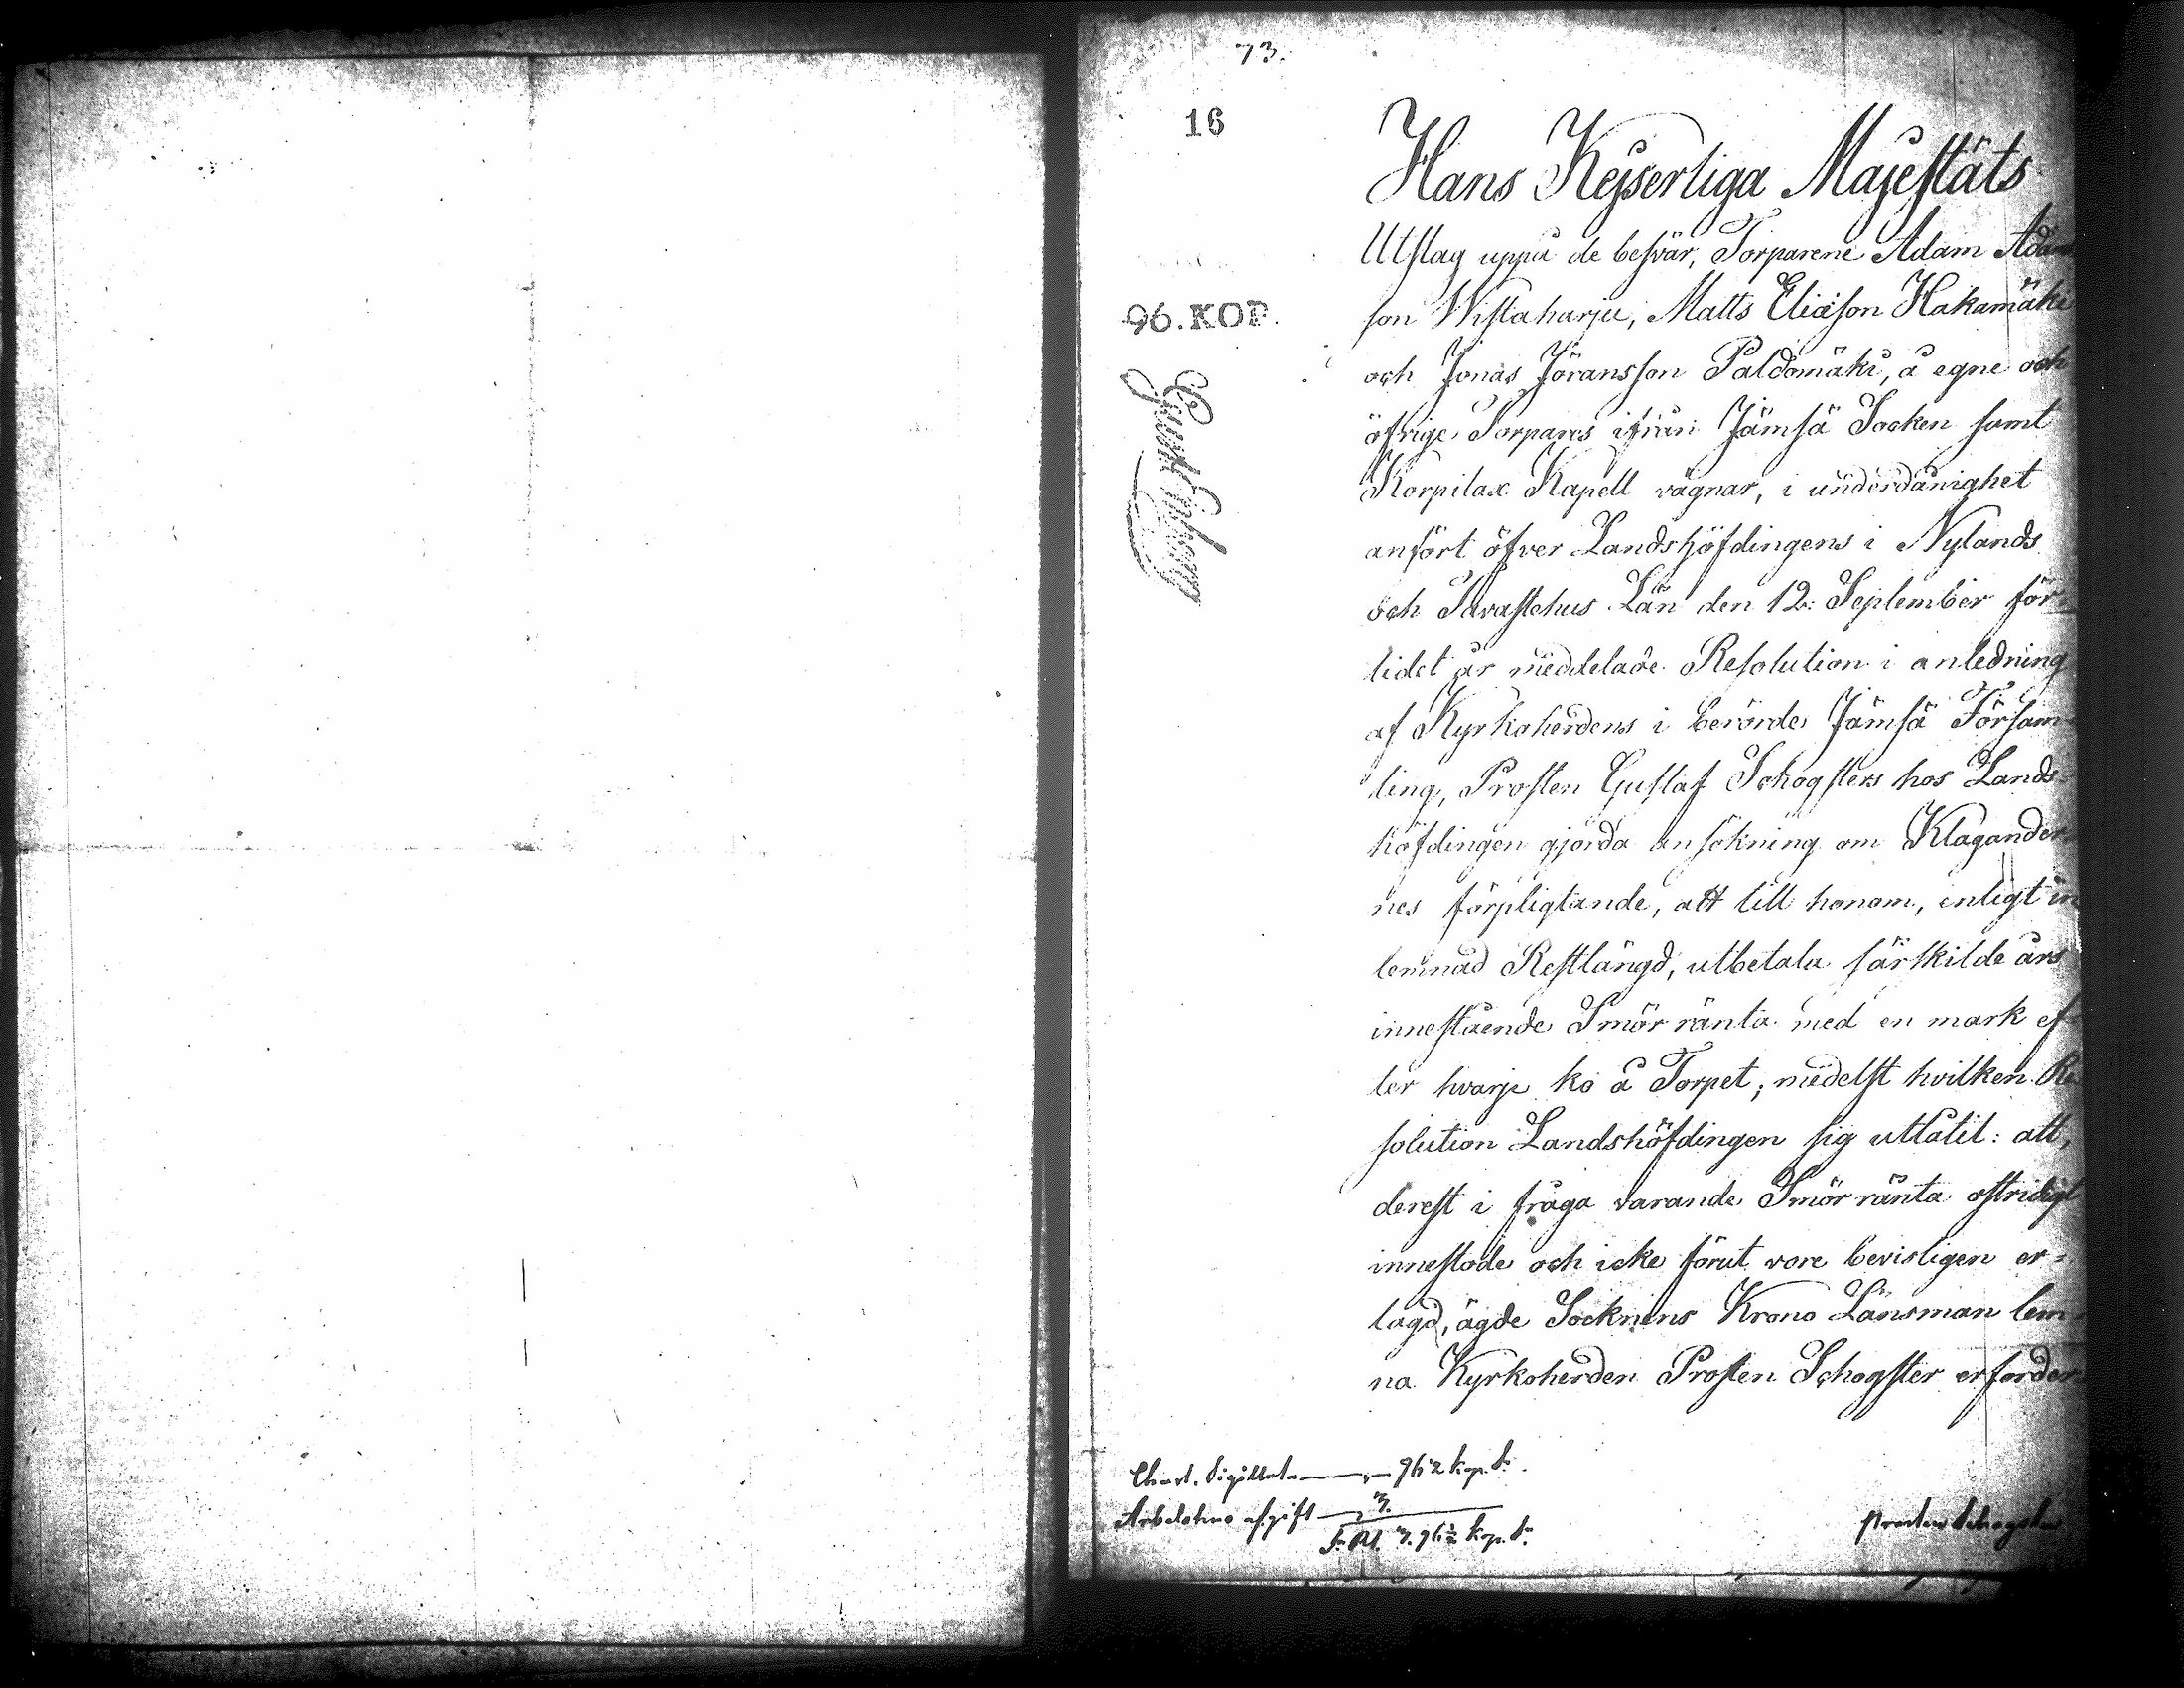 73.
16
Hans Kejserliga Majestäts
Utslag uppå de besvär, Torparene Adam Adam
96. KOP.
son Wistaharju, Matts Eliæson Hakamäki
och Jonas Jöransson Paldamäki, å egne och
öfrige Torpares ifrån Jämsä Socken samt
Korpilax Kapell vägnar, i underdånighet
anfört öfver Landshöfdingens i Nylands
och Tavastehus Län den 12. September för-
lidet år meddelade Resolution i anledning
af Kyrkoherdens i berörde Jämsä Försam-
ling, Prosten Gustaf Schogsters hos Lands-
höfdingen gjorda ansökning om Klagander-
nes förpligtande, att till honom, enligt in
lemnad Restlängd, utbetala särskilde års
innestående Smör ränta med en mark ef-
ter hvarje ko å Torpet; medelst hvilken Re
solution Landshöfdingen sig utlåtit: att,
derest i fråga varande Smör ränta ostridigt
innestode och icke förut vore bevisligen er-
lagd, ägde Socknens Krono Länsman lem-
na Kyrkoherden Prosten Schogster erforder
Chart. Sigillata 96½ kop. Sr.
Arbetshus afgift 3.
S. Rl. 3. 96½ kop. Sr.
Prosten Schogster